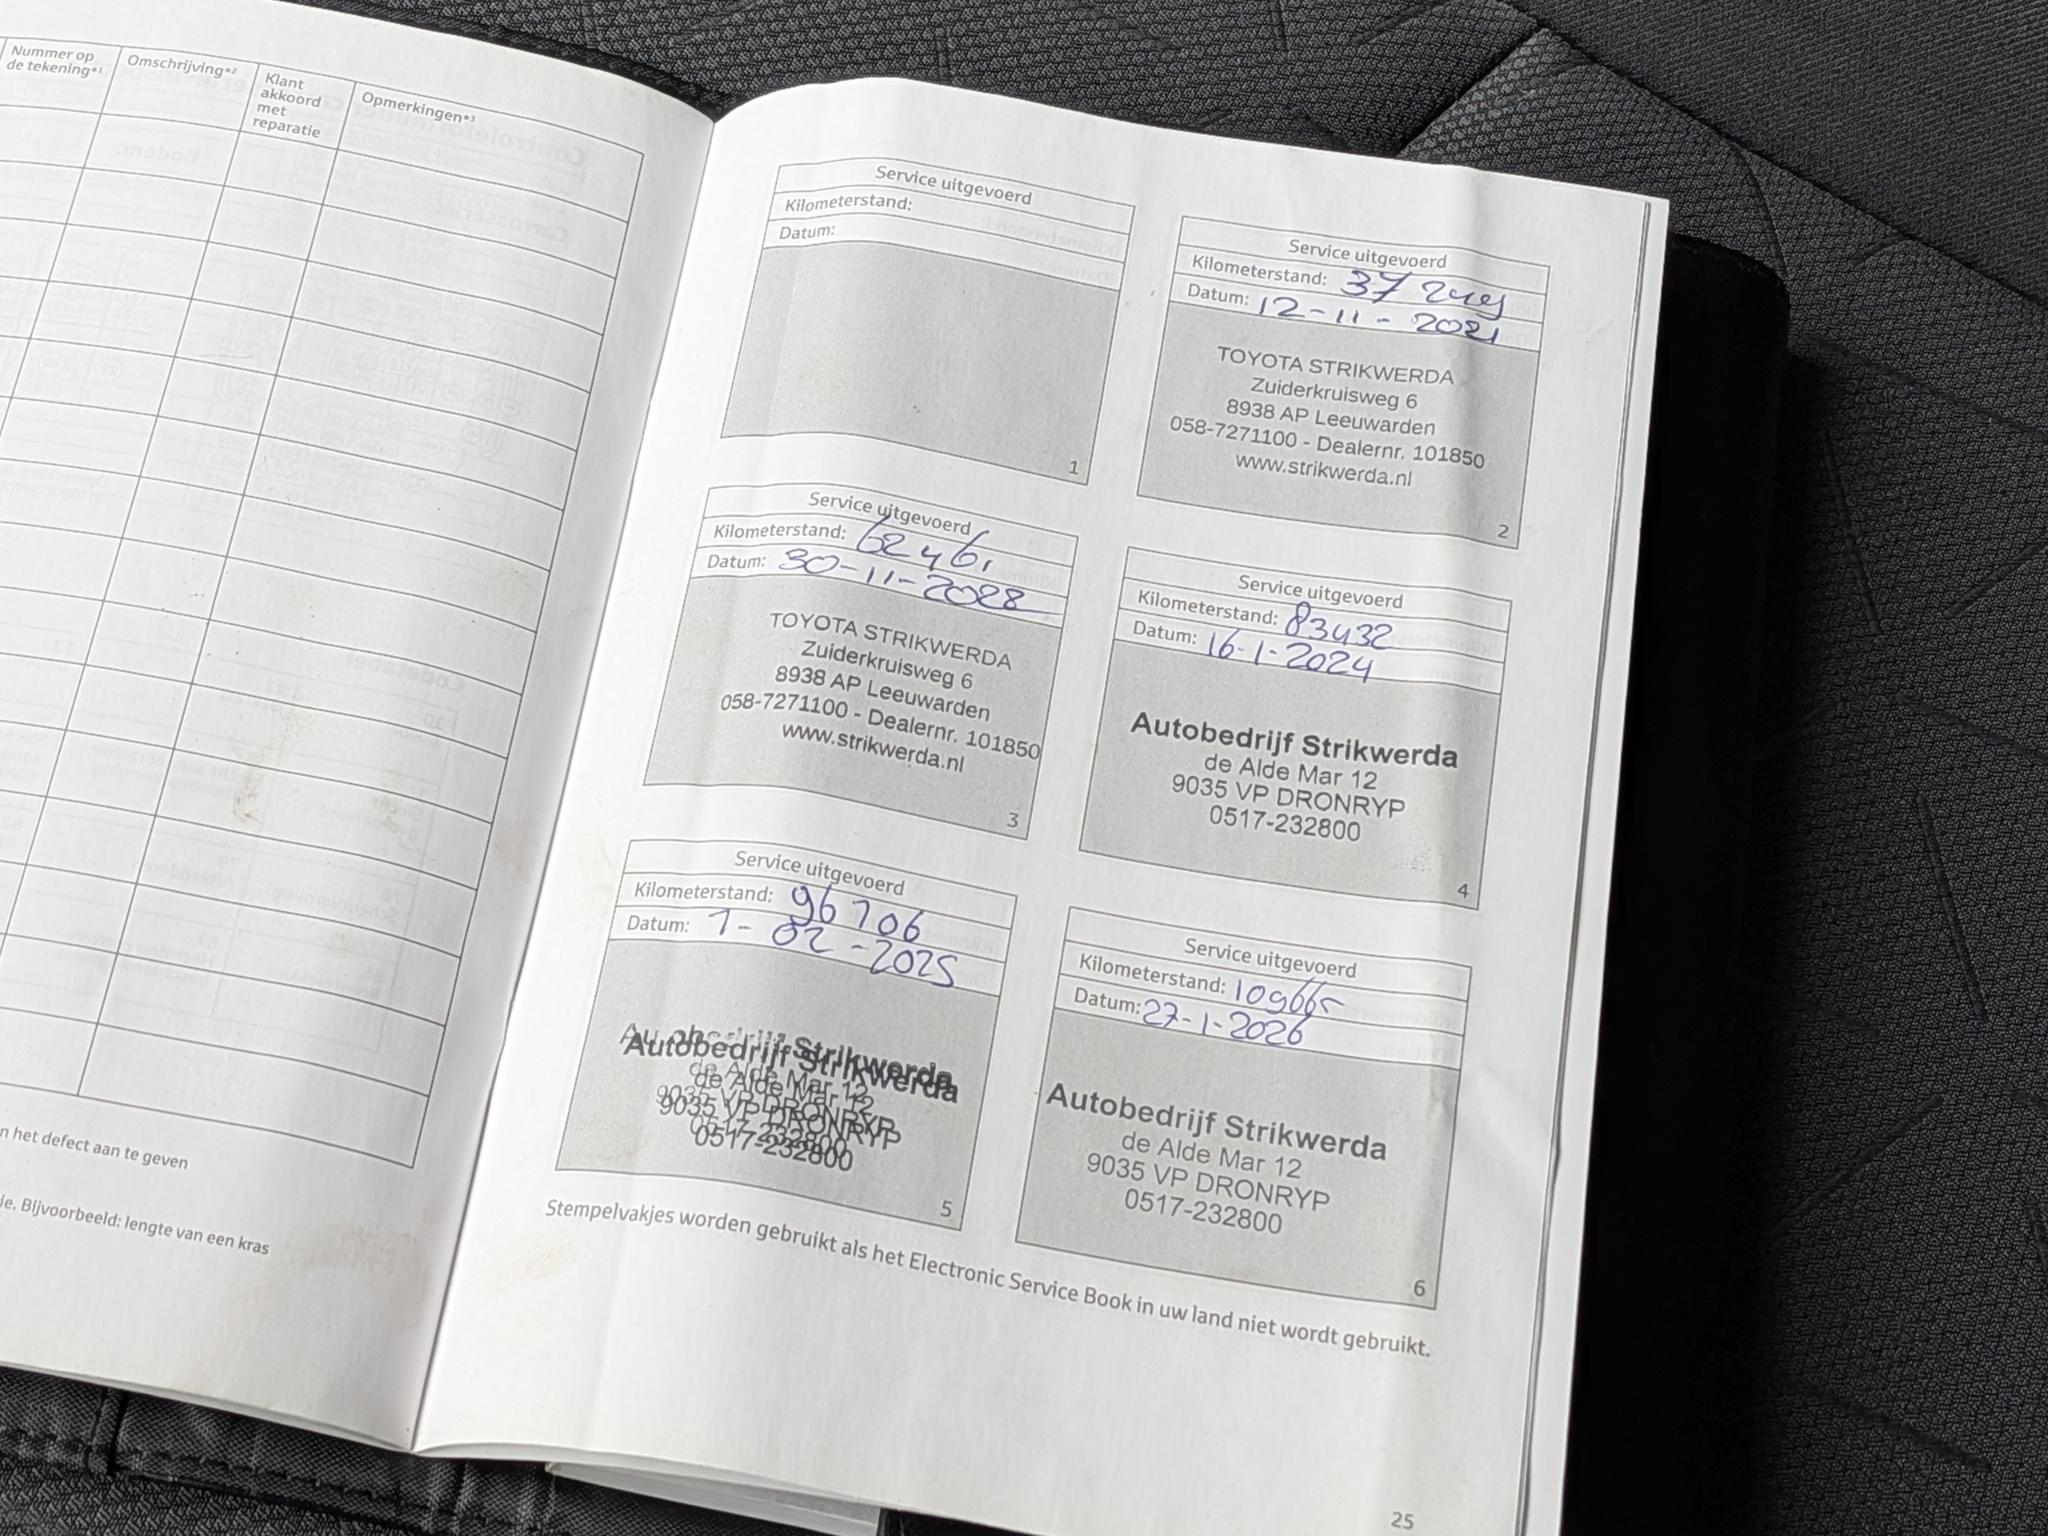 Nummer op
de tekening*1
Omschrijving*2
Klant
akkoord
met
reparatie
Opmerkingen*3
n het defect aan te geven
ie. Bijvoorbeeld: lengte van een kras
Service uitgevoerd
Kilometerstand:
Datum:
1
Service uitgevoerd
Kilometerstand: 37
Datum: 12-11-2021
TOYOTA STRIKWERDA
Zuiderkruisweg 6
8938 AP Leeuwarden
058-7271100 - Dealernr. 101850
www.strikwerda.nl
2
Service uitgevoerd
Kilometerstand: 62461
Datum: 30-11-2022
TOYOTA STRIKWERDA
Zuiderkruisweg 6
8938 AP Leeuwarden
058-7271100 - Dealernr. 101850
www.strikwerda.nl
3
Service uitgevoerd
Kilometerstand: 83432
Datum: 16-1-2024
Autobedrijf Strikwerda
de Alde Mar 12
9035 VP DRONRYP
0517-232800
4
Service uitgevoerd
Kilometerstand: 96706
Datum: 7-02-2025
Autobedrijf Strikwerda
de Alde Mar 12
9035 VP DRONRYP
0517-232800
5
Service uitgevoerd
Kilometerstand: 109665
Datum: 27-1-2026
Autobedrijf Strikwerda
de Alde Mar 12
9035 VP DRONRYP
0517-232800
6
Stempelvakjes worden gebruikt als het Electronic Service Book in uw land niet wordt gebruikt.
25